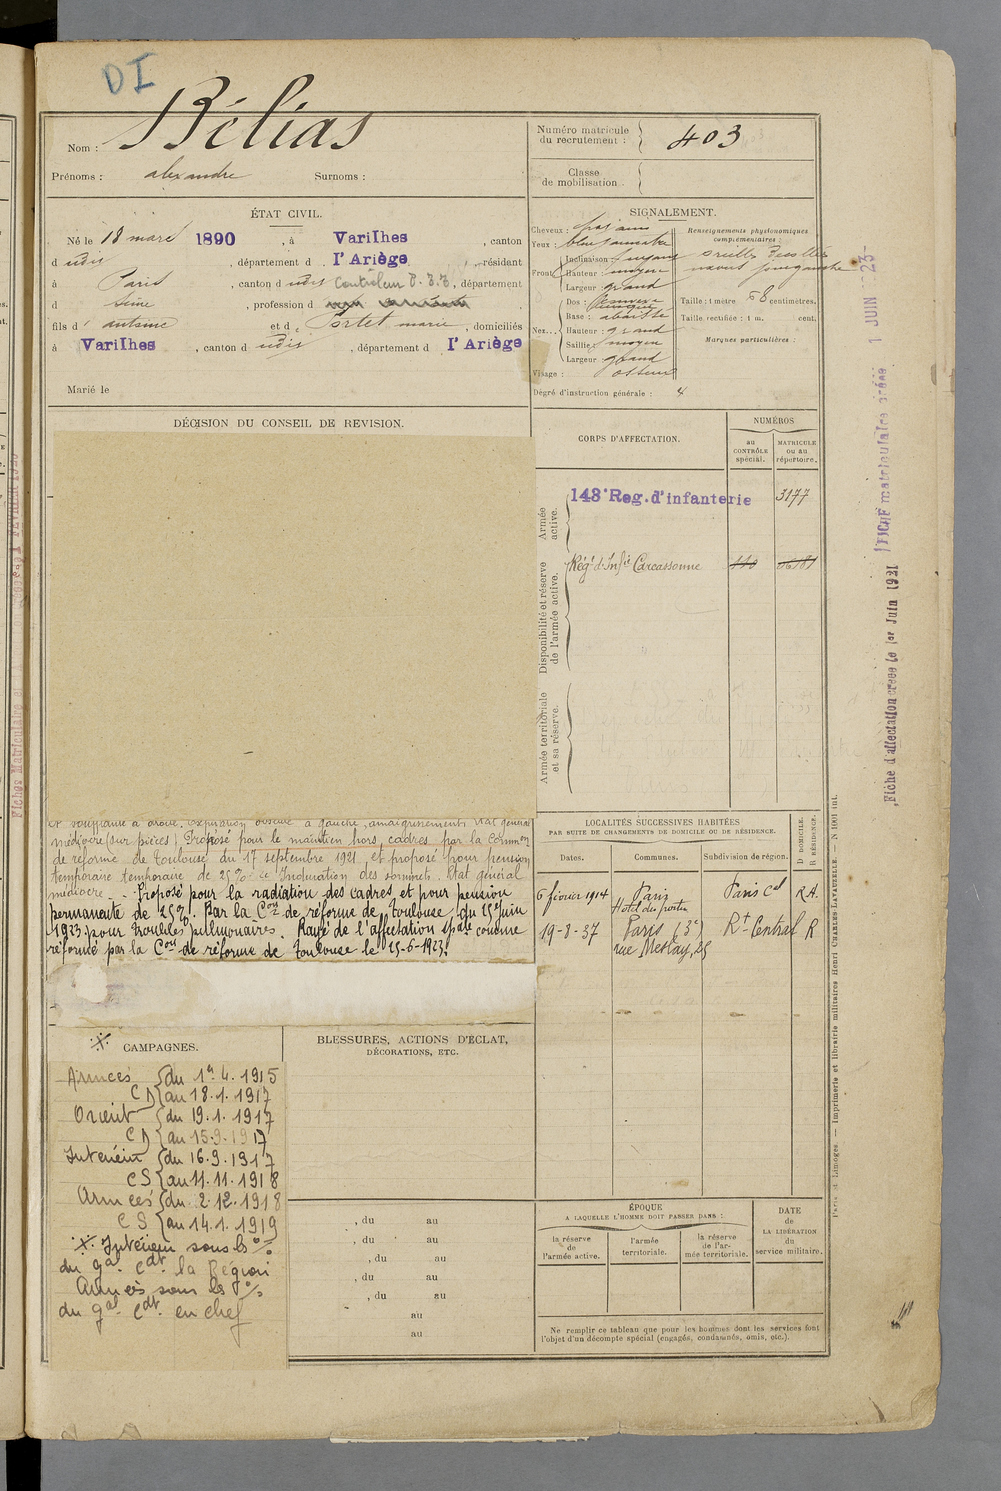 DI
Nom : Bélias
Prénoms : alexandre Surnoms :
Numéro matricule du recrutement : 403
Classe de mobilisation.
ÉTAT CIVIL.
Né le 18 mars 1890, à Varilhes, canton
d udit, département d l'Ariège, résidant
à Paris, canton d udit Controleur P.T.T., département
d Seine, profession d
fils d' antoine et d e Portet marie, domiciliés
à Varilhes, canton d udit, département d l'Ariège
Marié le
SIGNALEMENT.
Cheveux :
Yeux :
Front
Inclinaison : fuyant
Hauteur : moyen
Largeur : grand
Nez
Dos :
Base : abaissée
Hauteur : grand
Saillie : moyen
Largeur : grand
Visage : osseux
Renseignements physionomiques complémentaires :
oreilles
Taille : 1 mètre 68 centimètres.
Taille rectifiée : 1 m. cent.
Marques particulières :
Dégré d'instruction générale : 4
DÉCISION DU CONSEIL DE REVISION.
CORPS D'AFFECTATION.
NUMÉROS
au CONTRÔLE spécial.
MATRICULE ou au répertoire.
Armée active.
143e Reg. d'infanterie 3177
Disponibilité et réserve de l'armée active.
Rég.t d'Inf.ie Carcassonne
Armée territoriale et sa réserve.
et soufflante à droite. Expiration obscure à gauche, amaigrissement. Etat général
médiocre (sur pièces) Proposé pour le maintien hors cadres par la Comm.on
de réforme de Toulouse du 17 septembre 1921, et proposé pour pension
temporaire temporaire de 25% Induration des sommets. Etat général
médiocre. Proposé pour la radiation des cadres et pour pension
permanente de 25%. Par la Con de réforme de Toulouse du 25 juin
1923 pour troubles pulmonaires. Rayé de l'affectation spale comme
réformé par la Con de réforme de Toulouse le 25-6-1923.
LOCALITÉS SUCCESSIVES HABITÉES
PAR SUITE DE CHANGEMENTS DE DOMICILE OU DE RÉSIDENCE.
Dates. Communes. Subdivision de région. D DOMICILE. R RÉSIDENCE.
6 février 1914 Paris Paris Cal R.A.
Hotel du
19-8-37 Paris (3e) Rt Central R
rue Meslay, 25
CAMPAGNES.
Armées du 1er.4.1915
CD au 18.1.1917
Orient du 19.1.1917
CD au 15.9.1917
Intérieur du 16.9.1917
CS au 11.11.1918
Armées du 2.12.1918
CS au 14.1.1919
Intérieur sous les o/
du gal cdt la Région
Armées sous les o/
du gal cdt en chef
BLESSURES, ACTIONS D'ÉCLAT,
DÉCORATIONS, ETC.
, du au
, du au
, du au
, du au
, du au
au
au
ÉPOQUE
A LAQUELLE L'HOMME DOIT PASSER DANS :
la réserve de l'armée active.
l'armée territoriale.
la réserve de l'armée territoriale.
DATE de LA LIBÉRATION du service militaire.
Ne remplir ce tableau que pour les hommes dont les services font
l'objet d'un décompte spécial (engagés, condamnés, omis, etc.).
Paris et Limoges. — Imprimerie et librairie militaires Henri CHARLES-LAVAUZELLE. — N 1001 int.
Fiche d'affectation créée le 1er Juin 1921
FICHE matriculaire créée 1 JUIN 23